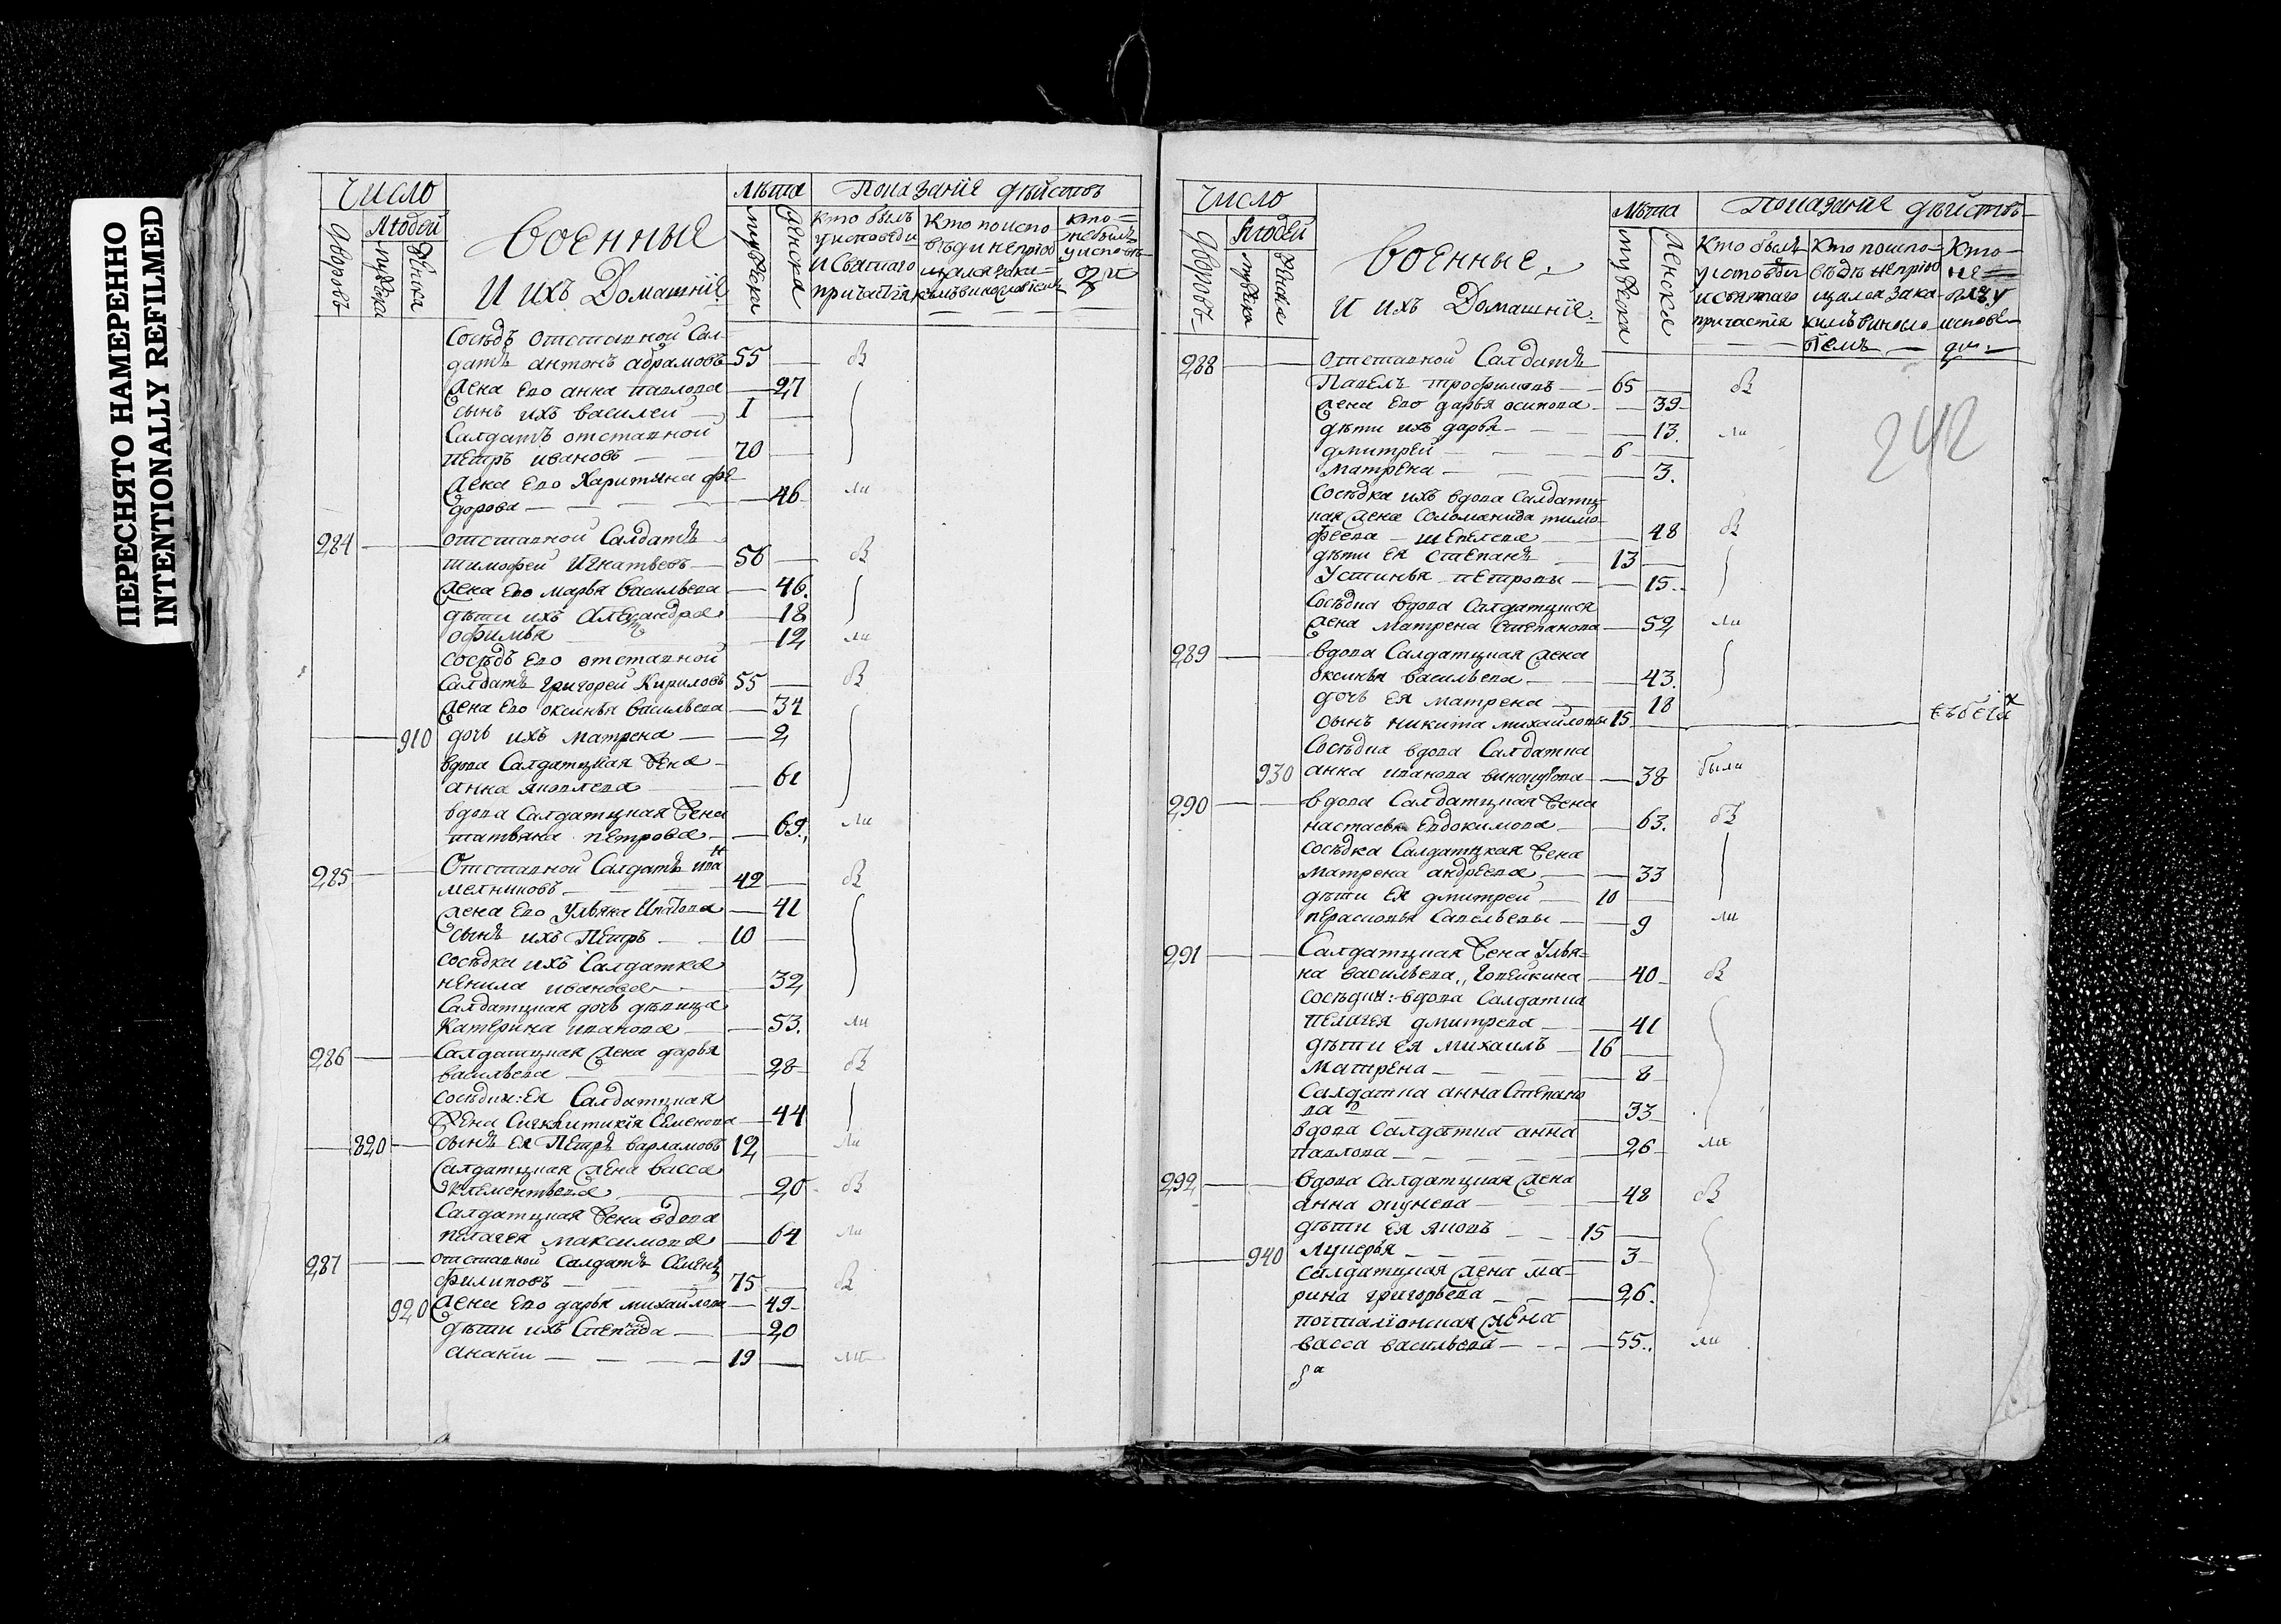 ПЕРЕСНЯТО НАМЕРЕННО
INTENTIONALLY REFILMED
Число
Людей
Дворовъ
мужска
женска
Военныя
И ихъ Домашнiе
Лѣта
мужска
женска
Показанiе дѣйствъ
Кто былъ
у исповеди
И Святаго
причастiя
Кто по испо
вѣди не прiоб
щался и за ка
кимъ винословiемъ
Кто
не былъ
у исповѣ
ди
Сосѣдъ отставной Сал
датъ антонъ абрамовъ 55 б
жена Его анна павлова 27
сынъ ихъ василей 1
Салдатъ отставной
петръ ивановъ 70
жена Его Харитина фе
дорова 46 ли
284 отставной Салдатъ
тимофей Игнатьевъ 56 б
жена Его марья васильева 46
дѣти ихъ Александра 18
офимья 12 ли
сосѣдъ Его отставной
Салдатъ григорей Кириловъ 55 б
жена Его оксинья васильева 34
910 дочь ихъ матрена 2
вдова Салдатцкая жена
анна яковлева 61
вдова Салдатцкая жена
татьяна петрова 69 ли
285 Отставной Салдатъ иван
мелниковъ 42 б
жена Его Ульяна Ипатова 41
сынъ ихъ Петръ 10
сосѣдка ихъ Салдатка
ненила иванова 32
Салдатцкая дочь дѣвица
Катерина иванова 53 ли
286 Салдатцкая жена дарья
васильева 28 б
сосѣдки: Ея Салдатцкая
жена Сигклитикiя Семенова 44
820 сынъ Ея Петръ варламовъ 12 ли
Салдатцкая жена васса
клементьева 20 б
Салдатцкая жена вдова
пелагея максимова 64 ли
287 отставной Салдатъ Семенъ
филиповъ 75 б
920 жена Его дарья михайлова 49
дѣти ихъ Степанида 20
ананiи 19 ли
Число
Людей
Дворовъ
мужска
женска
Военные
И ихъ Домашнiе
Лѣта
мужска
женска
Показанiя дѣйствъ
Кто былъ
у исповѣди
и святаго
причастiя
Кто по испо
вѣдѣ не прiоб
щался и за ка
кимъ виносло
вiемъ
Кто
не
былъ у
исповѣ
ди
242
288 отставной Салдатъ
Павелъ трофимовъ 65 б
жена Его дарья осипова 39
дѣти ихъ дарья 13 ли
дмитрей 6
матрена 3
Сосѣдка ихъ вдова Салдатц
кая жена Соломанида тимо
феева шепелева 48 б
дѣти Ея Степанъ 13
Устинья петровы 15
Сосѣдка вдова Салдатцкая
жена матрена Степанова 52 ли
289 вдова Салдатцкая жена
оксинья васильева 43
дочь Ея матрена 18
сынъ никита михайловы 15 въ бегах
Сосѣдка вдова Салдатка
930 анна иванова винокурова 38 были
290 вдова Салдатцкая жена
настасья Евдокимова 63 б
сосѣдка Салдатцкая жена
матрена андреева 33
дѣти Ея дмитрей 10
парасковья Савельевы 9 ли
291 Салдатцкая жена Улья
на васильева Копейкина 40 б
сосѣдки: вдова Салдатка
пелагея дмитрева 41
дѣти Ея михаилъ 16
Матрена 8
Салдатка анна Степано
ва 33
вдова Салдатка анна
павлова 26 ли
292 вдова Салдатцкая жена
анна окунева 48 б
дѣти Ея яковъ 15
940 лукерья 3
салдатцкая жена ма
рина григорьева 26
почталiонская жена
васса васильева 55 ли